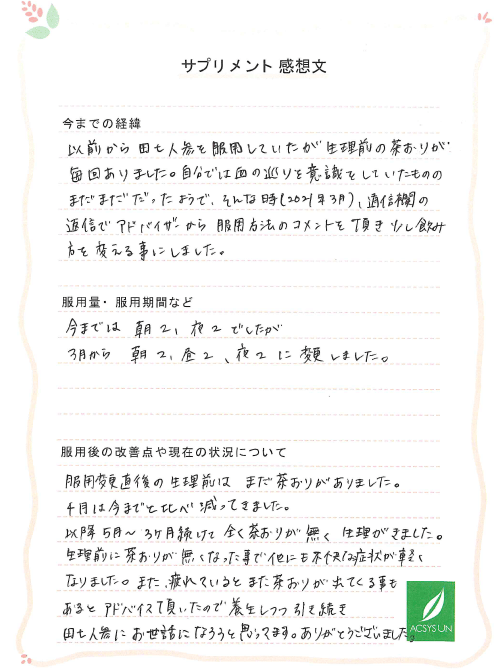 サプリメント 感想文
今までの経緯
以前から 田七人参を服用していたが生理前の茶おりが
毎回ありました。自分では血の巡りを意識をしていたものの
まだまだだったようで、そんな時(2021年3月)、通信欄の
返信でアドバイザーから 服用方法のコメントを頂き少し飲み
方を変える事にしました。
服用量・服用期間など
今までは 朝2、夜2 でしたが
3月から 朝2、昼2、夜2 に変更しました。
服用後の改善点や現在の状況について
服用変更直後の生理前は まだ茶おりがありました。
4月は今までと比べ減ってきました。
以降5月～3ヶ月続けて全く茶おりが無く 生理がきました。
生理前に茶おりが無くなった事で他にも不快な症状が軽く
なりました。また、疲れているとまた茶おりが出てくる事も
あると アドバイス頂いたので養生しつつ引き続き
田七人参にお世話になろうと思ってます。ありがとうございました。
ACSYSUN